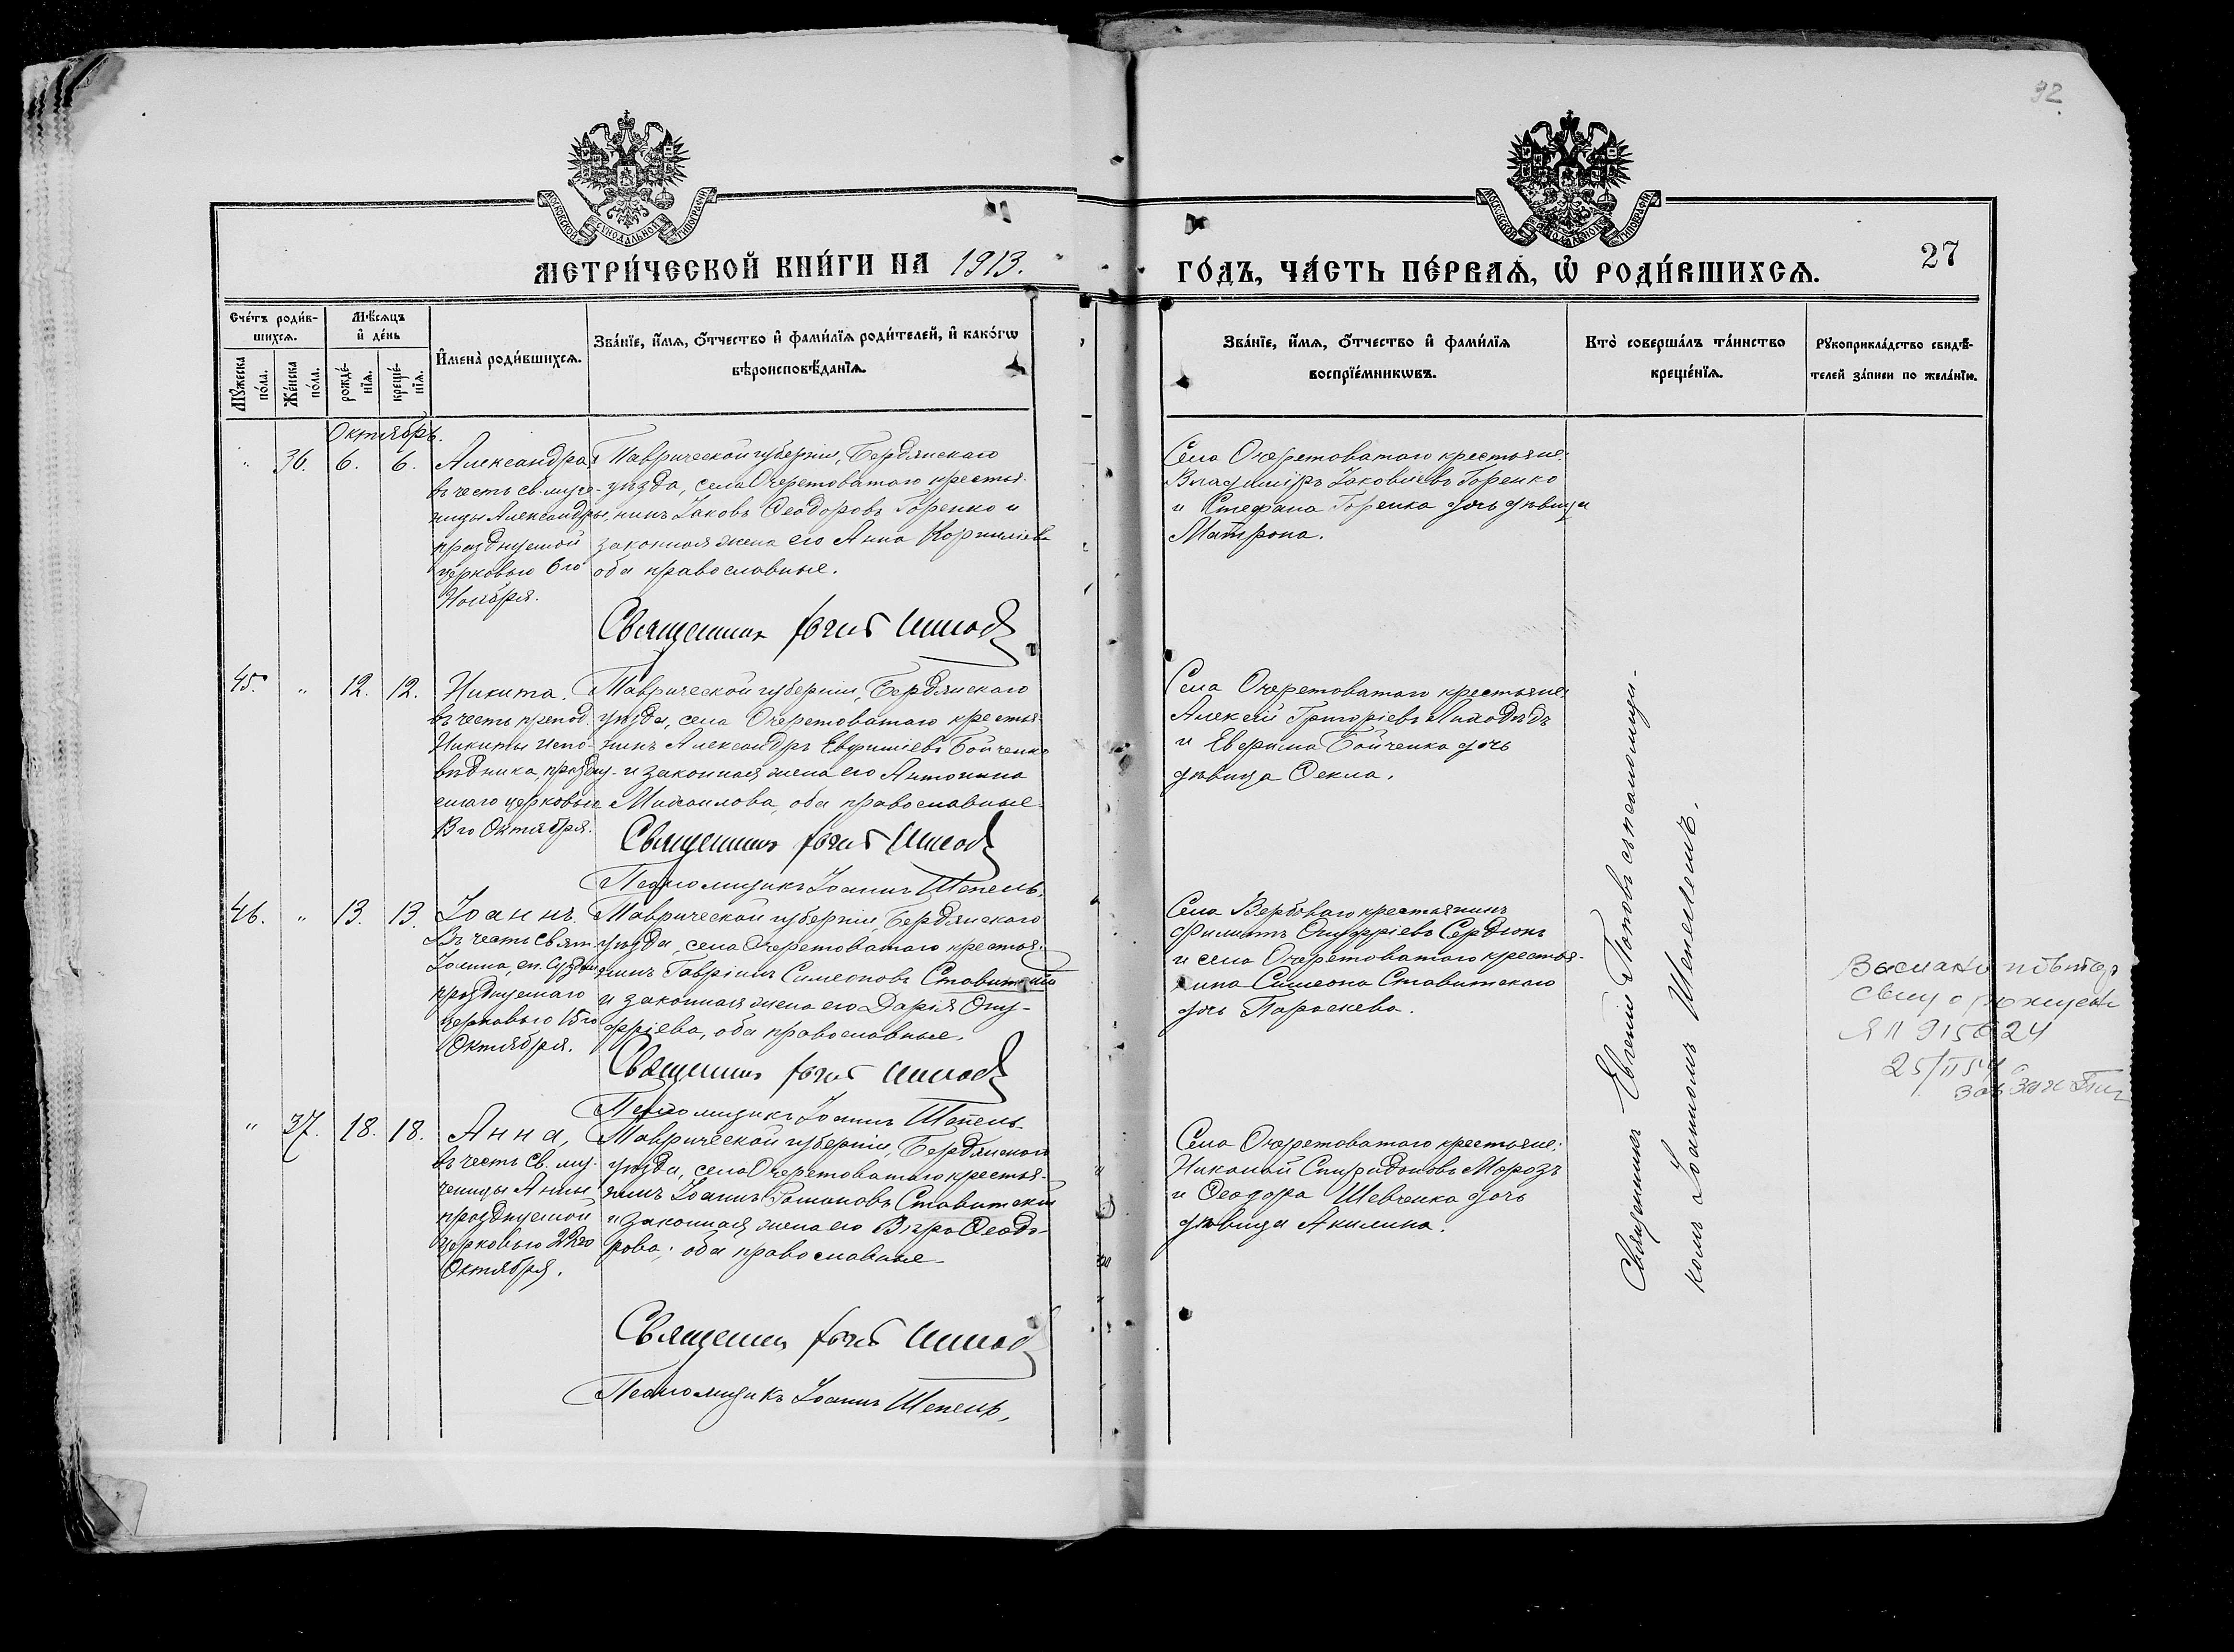 32
27
МОСКОВСКОЙ СѴНОДАЛЬНОЙ ТИПОГРАФІИ
МОСКОВСКОЙ СѴНОДАЛЬНОЙ ТИПОГРАФІИ
МЕТРИ́ЧЕСКОЙ КНИ́ГИ НА 1913.
ГО́ДЪ, ЧА́СТЬ ПЕ́РВАѦ, Ѽ РОДИ́ВШИХСѦ.
Сче́тъ роди́в-
шихсѧ.
Мꙋ́жеска по́ла.
Же́нска по́ла.
Мѣ́сѧцъ
и҆ де́нь
рожде́-
нїѧ.
креще́-
нїѧ.
И҆мена̀ роди́вшихсѧ.
Зва́нїе, и҆́мѧ, ѻ҆́тчество и҆ фами́лїѧ роди́телей, и҆ како́гѡ
вѣроисповѣ́данїѧ.
Зва́нїе, и҆́мѧ, ѻ҆́тчество и҆ фами́лїѧ
воспрїе́мникѡвъ.
Кто̀ соверша́лъ та́инство
креще́нїѧ.
Рꙋкоприкла́дство свидѣ́-
телей за́писи по жела́нїю.
Октябрь.
" 36. 6. 6.
Александра
въ честь св. муче-
ницы Александры,
празднуемой
церковью 6го
Ноября.
Таврической губерніи, Бердянскаго
уѣзда, села Очеретоватаго крестья-
нинъ Іаковъ Ѳеодоровъ Горенко и
законная жена его Анна Корниліева
оба православные.
Священник
Села Очеретоватаго крестьяне:
Владиміръ Іаковлевъ Горенко
и Стефана Горенка дочь дѣвица
Матрона.
45. " 12. 12.
Никита.
въ честь препод.
Никиты испо-
вѣдника, праздну-
емаго церковью
13го Октября.
Таврической губерніи, Бердянскаго
уѣзда, села Очеретоватаго крестья-
нинъ Александръ Евфиміевъ Бойченко
и законная жена его Антонина
Михаилова, оба православные.
Священникъ
Псаломщикъ Іоаннъ Шепель.
Села Очеретоватаго крестьяне:
Алексій Григоріевъ Лиходѣдъ
и Евфима Бойченка дочь
дѣвица Ѳекла.
46. " 13. 13.
Іоаннъ.
Въ честь Свят.
Іоанна, еп. Сузд.
празднуемаго
церковью 15го
Октября.
Таврической губерніи, Бердянскаго
уѣзда, села Очеретоватаго крестья-
нинъ Гавріилъ Симеоновъ Ставитскій
и законная жена его Дарія Ону-
фріева, оба православные.
Священник
Псаломщикъ Іоаннъ Шепель
Села Вербоваго крестьянинъ
Филиппъ Онуфріевъ Сердюкъ
и села Очеретоватаго крестья-
нина Симеона Ставитскаго
дочь Параскева.
" 37. 18. 18.
Анна,
въ честь Св. му-
ченицы Анны
празднуемой
церковью 22го
Октября.
Таврической губерніи, Бердянскаго
уѣзда, села Очеретоватаго крестья-
нинъ Іоаннъ Романовъ Ставитскій
и законная жена его Вѣра Ѳеодо-
рова; оба православные.
Священник
Псаломщикъ Іоаннъ Шепель,
Села Очеретоватаго крестьяне:
Николай Спиридоновъ Морозъ
и Ѳеодора Шевченка дочь
дѣвица Акилина.
Священникъ Евгеній Поповъ съ псаломщи-
комъ Іоанномъ Шепелемъ.
25/II 54